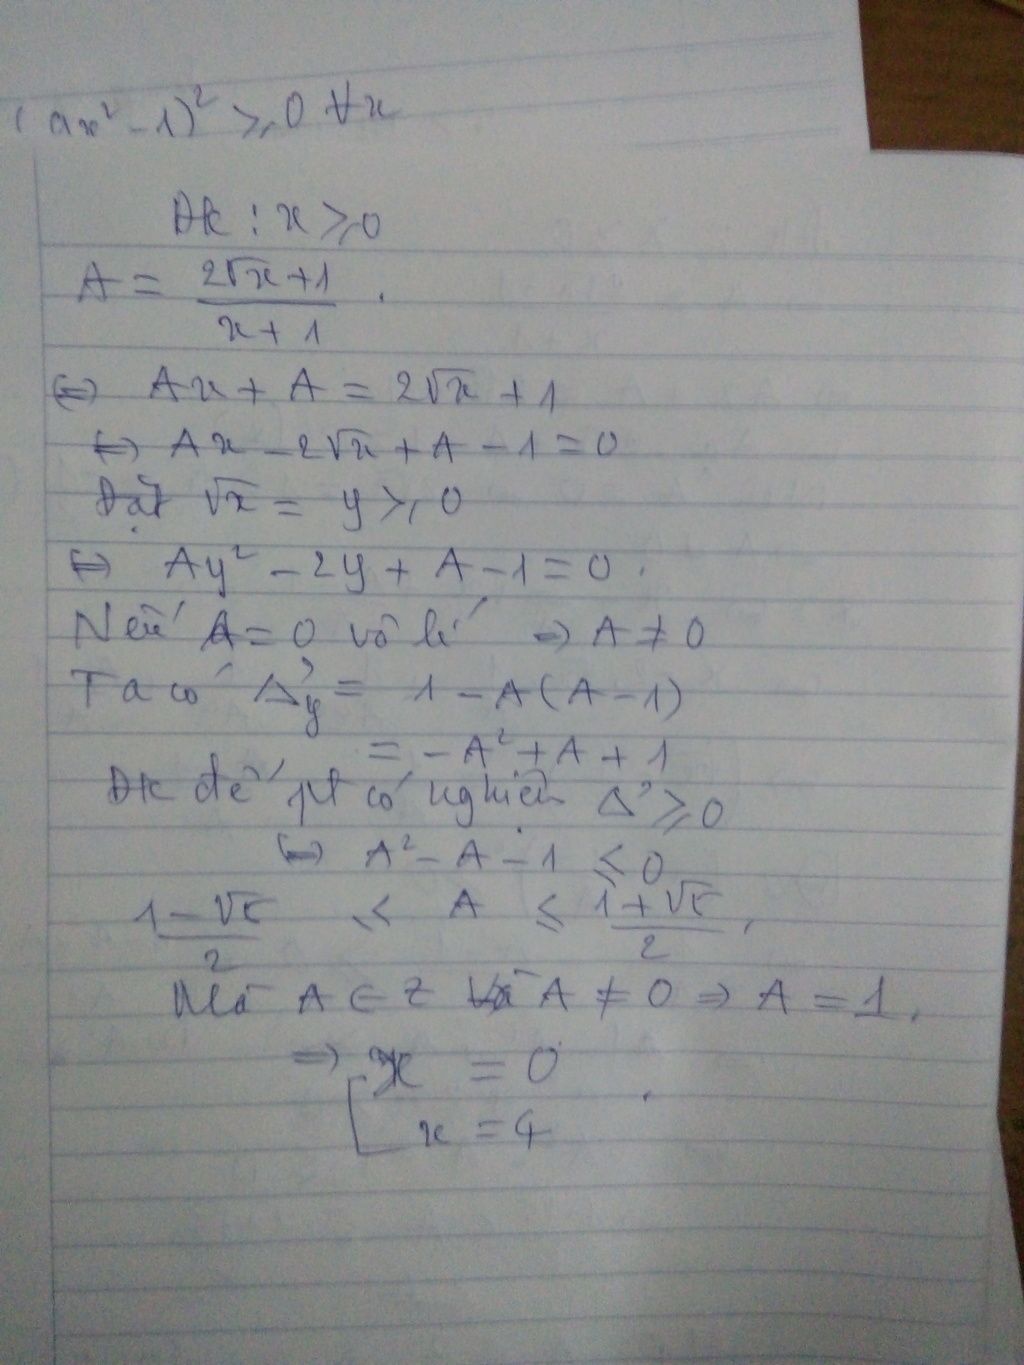 (ax² - 1)² ≥ 0 ∀x
Đk : x ≥ 0
A = (2√x + 1)/(x + 1) .
⇔ Ax + A = 2√x + 1
⇔ Ax - 2√x + A - 1 = 0
Đặt √x = y ≥ 0
⇔ Ay² - 2y + A - 1 = 0 .
Nếu A = 0 vô lí ⇒ A ≠ 0
Ta có Δ'y = 1 - A(A - 1)
= -A² + A + 1
Đk để pt có nghiệm Δ' ≥ 0
⇔ A² - A - 1 ≤ 0
(1 - √5)/2 ≤ A ≤ (1 + √5)/2 .
Mà A ∈ Z và A ≠ 0 ⇒ A = 1 .
⇒ [ x = 0
x = 4 .